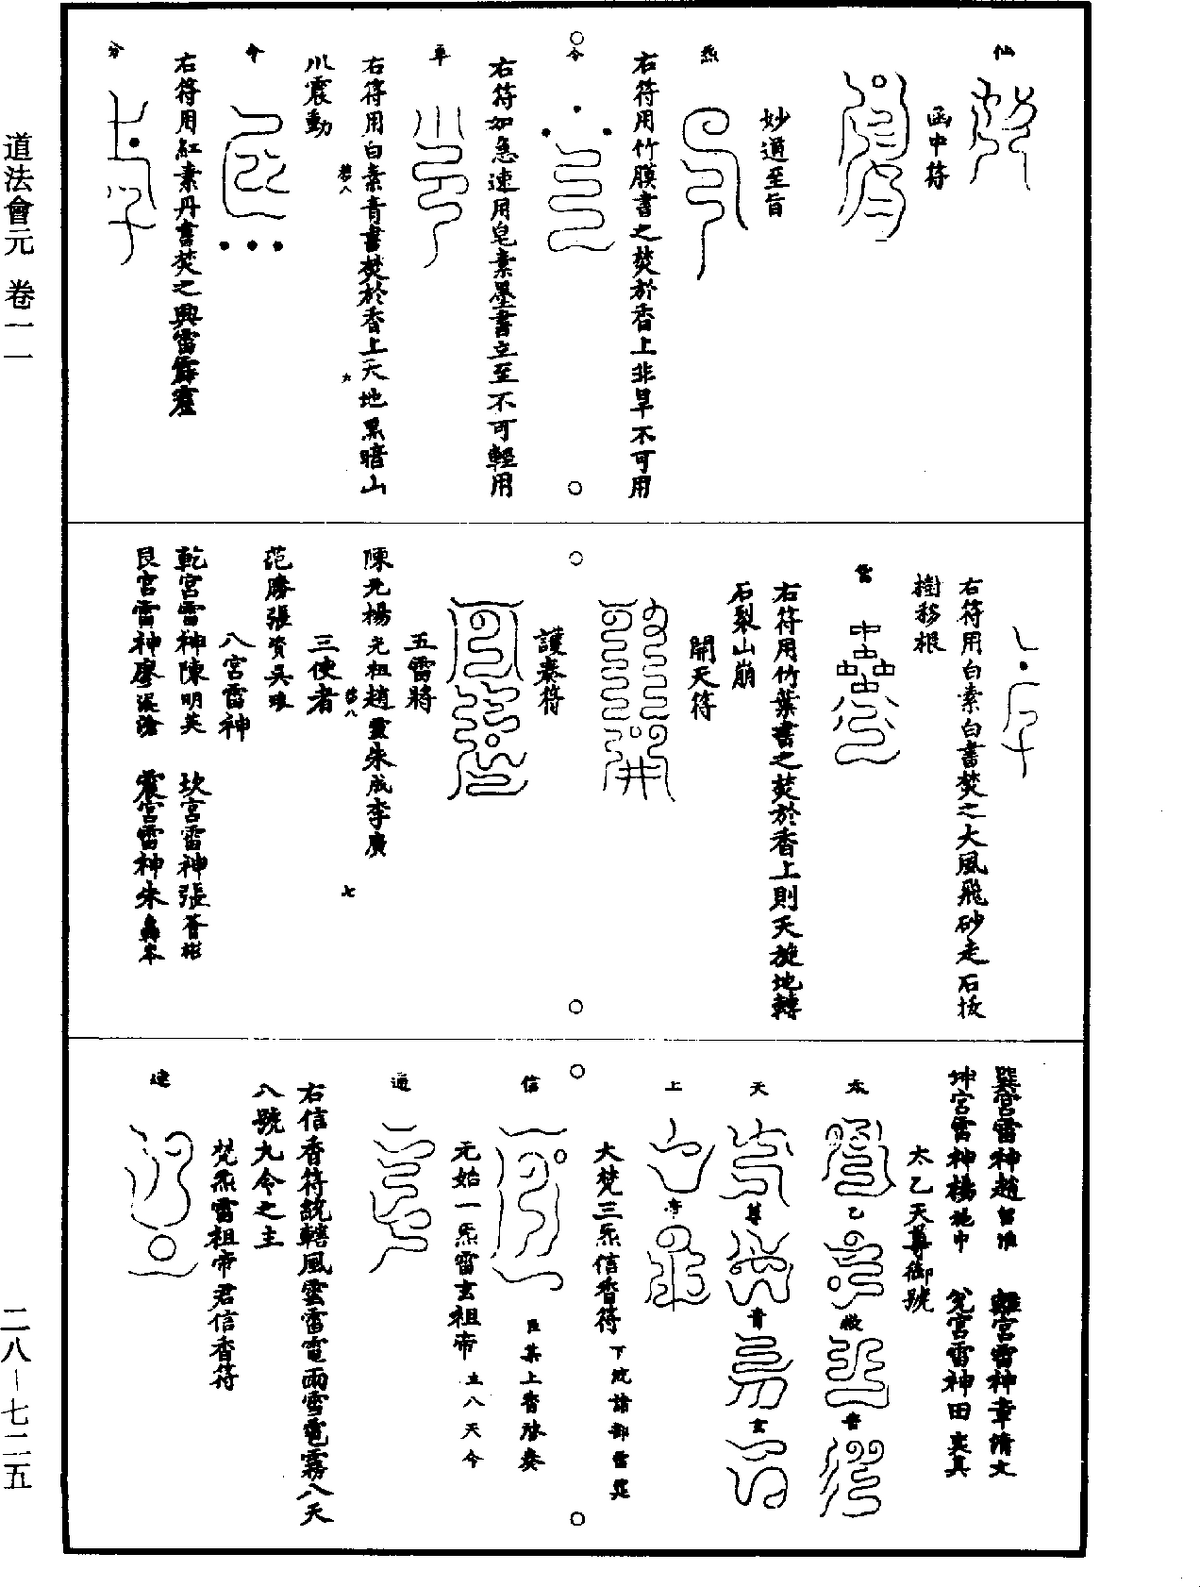 道法會元 卷一一
二八－七二五
仙
函中符
妙通至旨
炁
右符用竹膜書之焚於香上非旱不可用
令
右符如急速用皂素墨書立至不可輕用
右符用白素青書焚於香上天地黑暗山
川震動
六
右符用紅素丹書焚之興雷霹靂
右符用白素白書焚之大風飛砂走石拔
樹移根
右符用竹葉書之焚於香上則天旋地轉
石裂山崩
開天符
護奏符
五雷將
陳元 楊光祖 趙靈 朱成 李廣
三使者
七
范勝 張資 吳
八宮雷神
乾宮雷神陳明英 坎宮雷神張蒼彬
艮宮雷神廖 震宮雷神朱
巽宮雷神趙 離宮雷神章清文
坤宮雷神楊 中 兌宮雷神田 真
太乙天尊御號
太
乙
救
苦
天
尊
青
玄
上
帝
大梵三炁信香符
信
臣某上香啓奏
元始一炁雷玄祖帝
主八天令
通
右信香符統轄風雲雷電雨雪雹霧八天
八號九令之主
梵炁雷祖帝君信香符
達